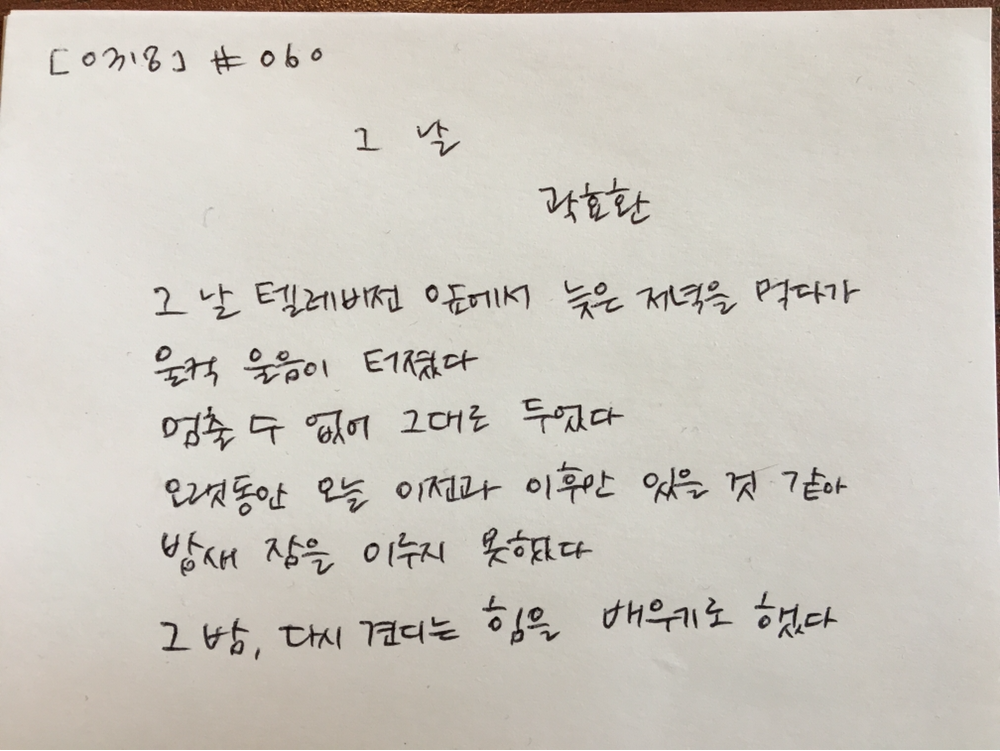 [0318] # 060
그 날
곽효환
그 날 텔레비전 앞에서 늦은 저녁을 먹다가
울컥 울음이 터졌다
멈출 수 없어 그대로 두었다
오랫동안 오늘 이전과 이후만 있을 것 같아
밤새 잠을 이루지 못했다
그 밤, 다시 견디는 힘을 배우기로 했다